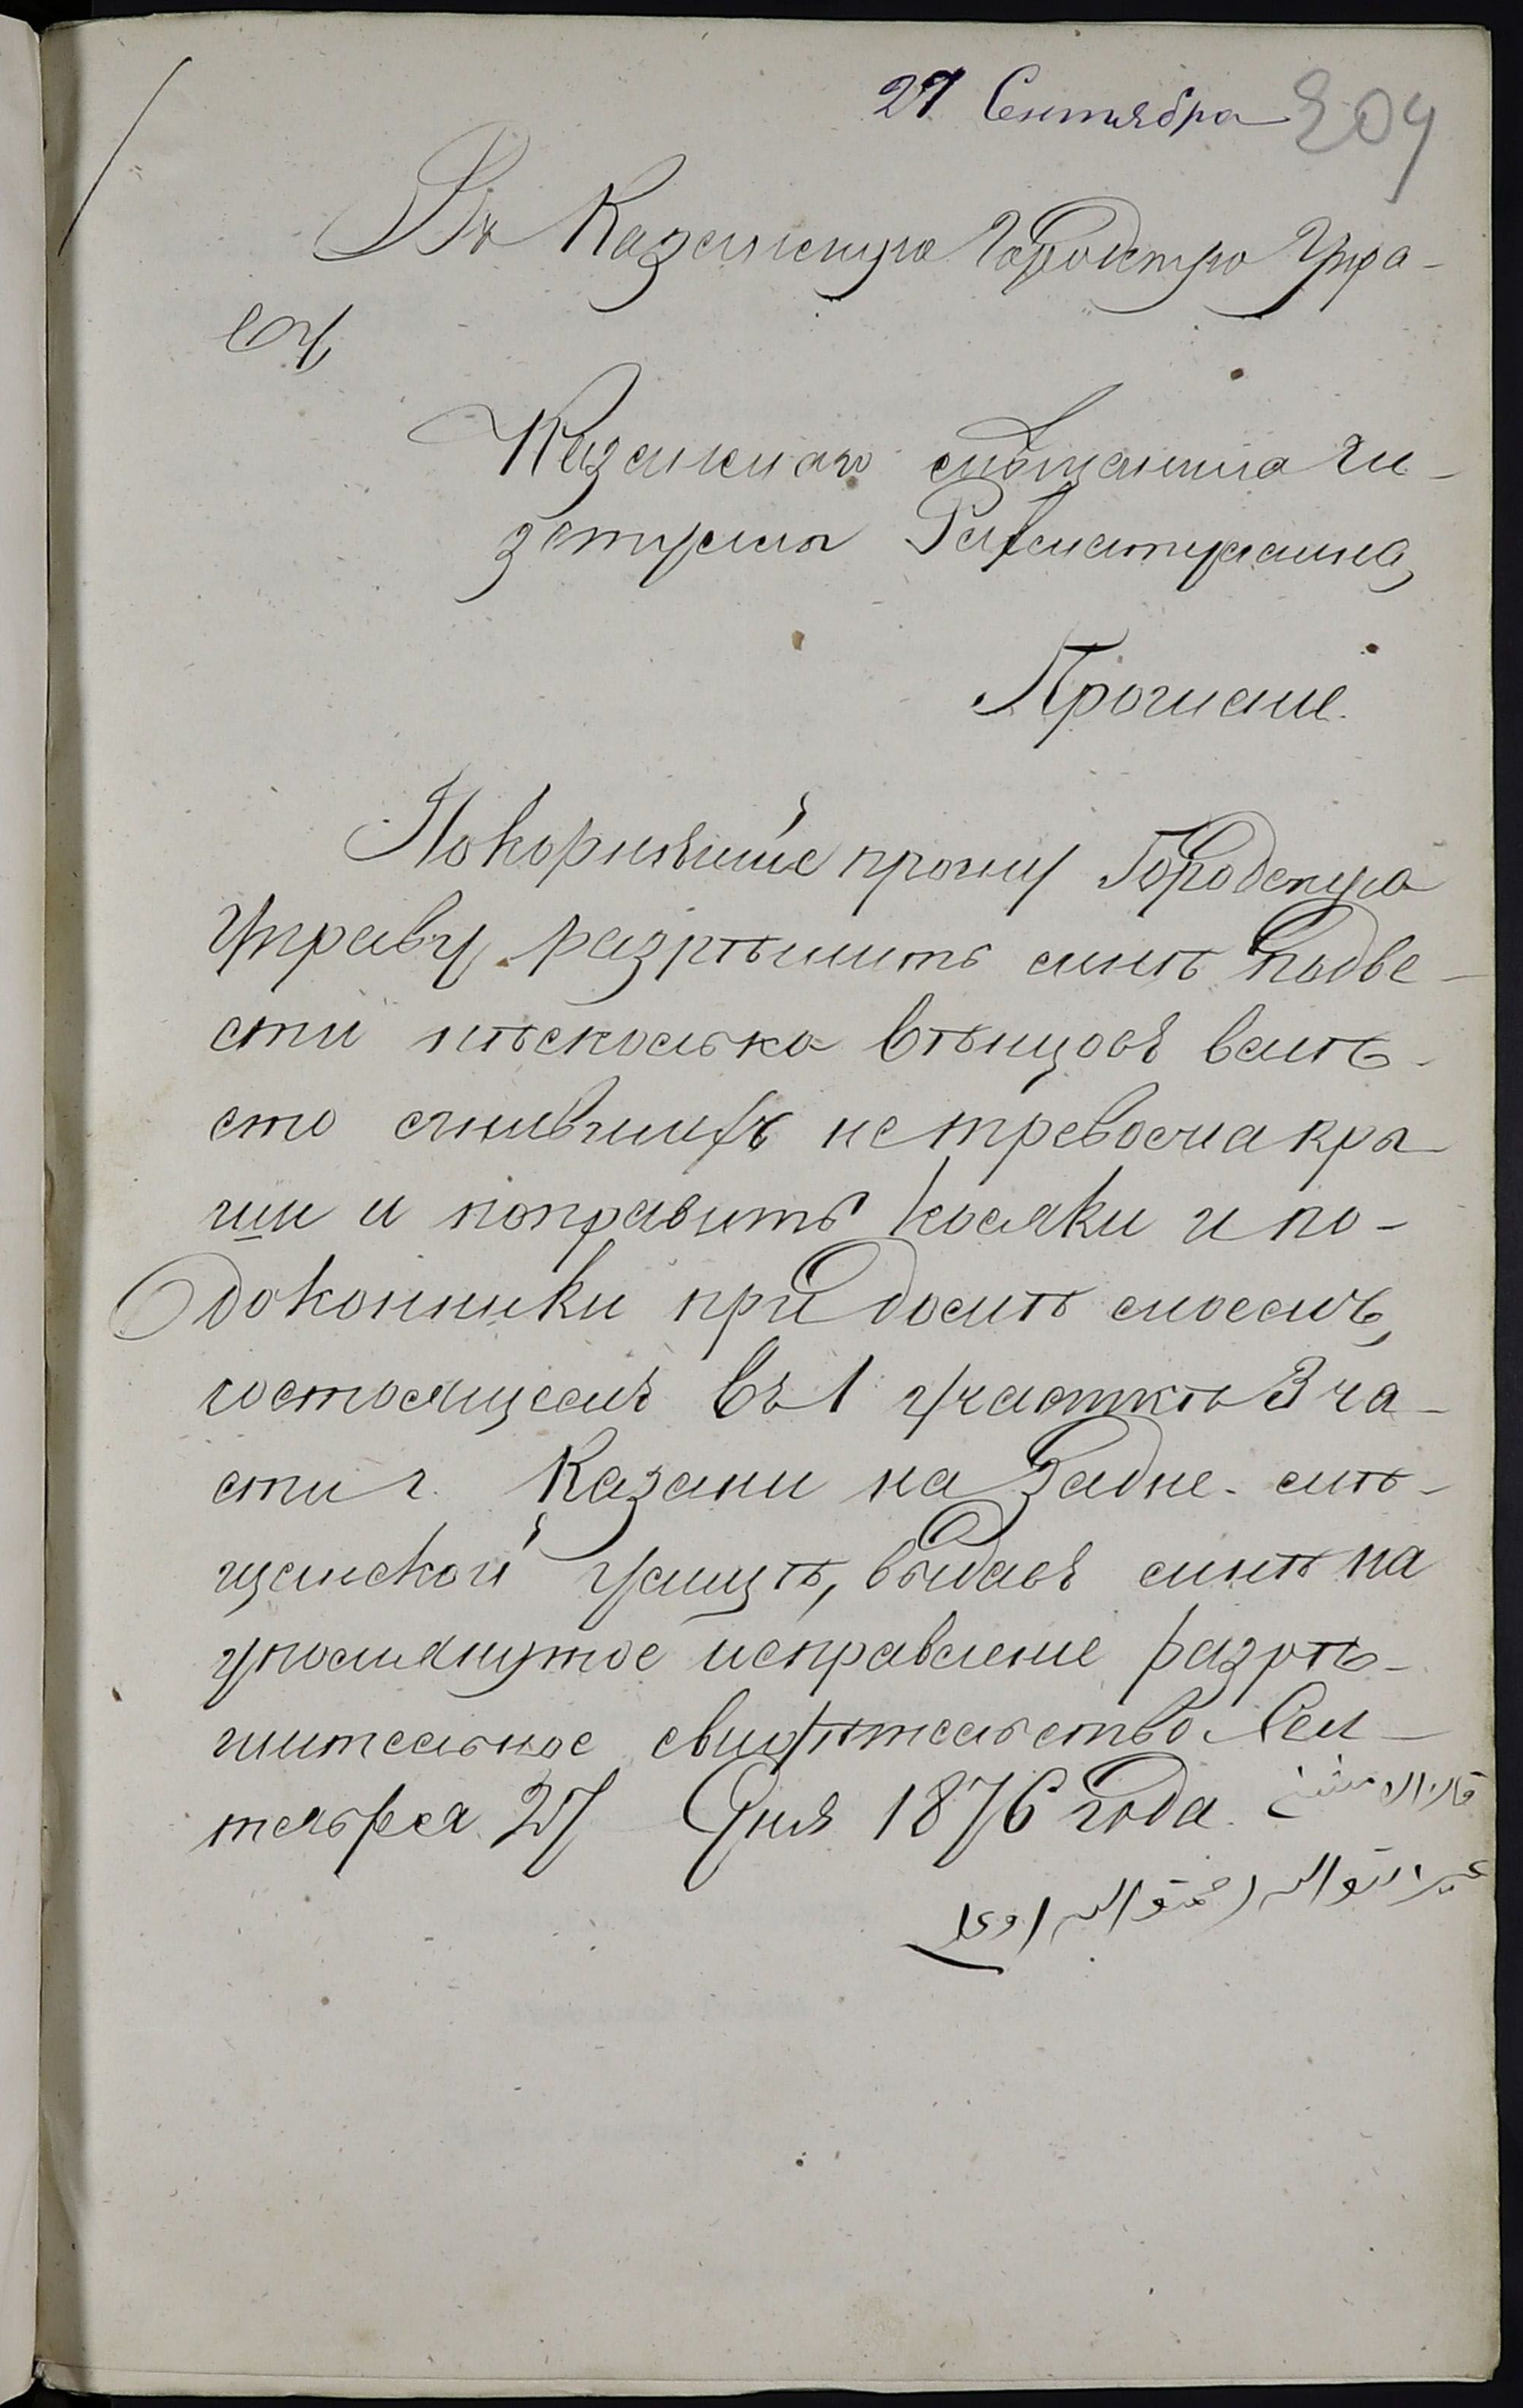 27 Сентября 204
Въ Казанскую Городскую Упра-
ву
Казанскаго мѣщанина Ги-
затуллы Рахматуллина
Прошеніе.
Покорнѣйше прошу Городскую
Управу разрѣшить мнѣ подве-
сти нѣсколько вѣнцовъ вмѣ-
сто сгнившихъ не тревожа кры
ши и поправить косяки и по-
доконники при домѣ моемъ,
состоящемъ въ 1 участкѣ 3 ча-
сти г. Казани на Задне-мѣ-
щанской улицѣ, выдавъ мнѣ на
упомянутое исправленіе разрѣ-
шительное свидѣтельство Сен-
тября 27 Дня 1876 года.